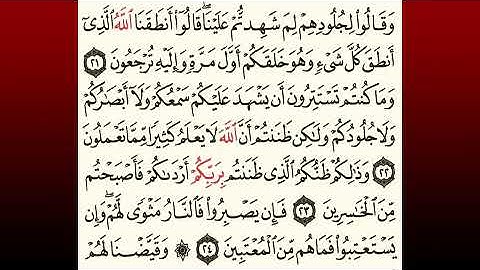 وَقَالُوا۟ لِجُلُودِهِمْ لِمَ شَهِدتُّمْ عَلَيْنَا ۖ قَالُوٓا۟ أَنطَقَنَا ٱللَّهُ ٱلَّذِىٓ
أَنطَقَ كُلَّ شَىْءٍ وَهُوَ خَلَقَكُمْ أَوَّلَ مَرَّةٍ وَإِلَيْهِ تُرْجَعُونَ ٢١
وَمَا كُنتُمْ تَسْتَتِرُونَ أَن يَشْهَدَ عَلَيْكُمْ سَمْعُكُمْ وَلَآ أَبْصَٰرُكُمْ
وَلَا جُلُودُكُمْ وَلَٰكِن ظَنَنتُمْ أَنَّ ٱللَّهَ لَا يَعْلَمُ كَثِيرًا مِّمَّا تَعْمَلُونَ
٢٢ وَذَٰلِكُمْ ظَنُّكُمُ ٱلَّذِى ظَنَنتُم بِرَبِّكُمْ أَرْدَىٰكُمْ فَأَصْبَحْتُم
مِّنَ ٱلْخَٰسِرِينَ ٢٣ فَإِن يَصْبِرُوا۟ فَٱلنَّارُ مَثْوًى لَّهُمْ ۖ وَإِن
يَسْتَعْتِبُوا۟ فَمَا هُم مِّنَ ٱلْمُعْتَبِينَ ٢٤ ۞ وَقَيَّضْنَا لَهُمْ